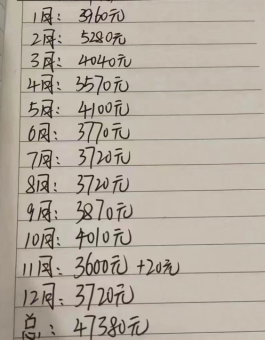 1月: 3960元
2月: 5280元
3月: 4040元
4月: 3570元
5月: 4100元
6月: 3770元
7月: 3720元
8月: 3720元
9月: 3870元
10月: 4010元
11月: 3600元 +20元
12月: 3720元
总: 47380元